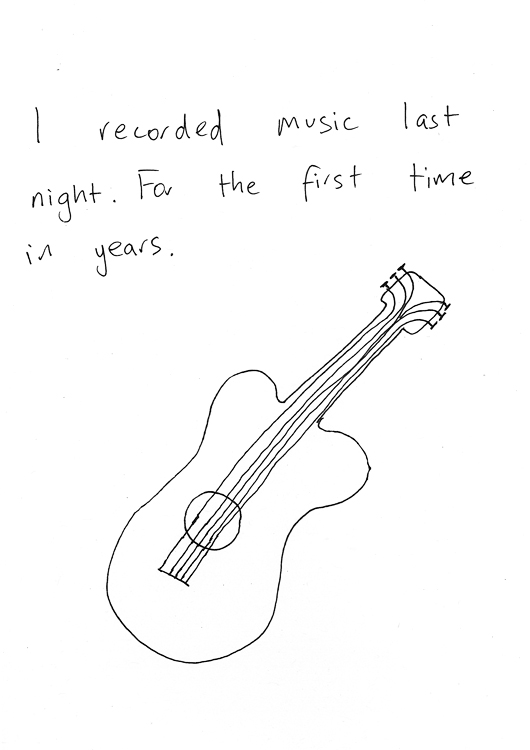 I recorded music last
night. For the first time
in years.